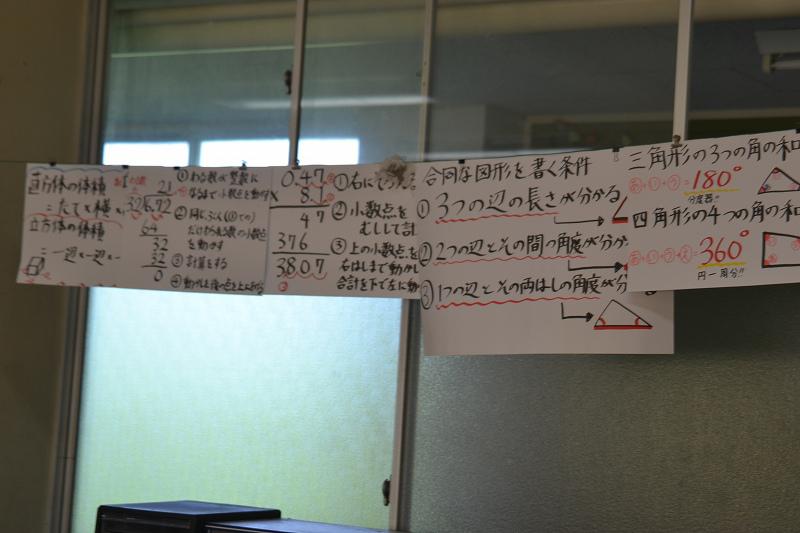 直方体の体積
=たて×横×
立方体の体積
=一辺×一辺×
21
32 672
64
32
32
0
①わる数が整数に
なるまで小数点を動かす
②同じぶん(⓪で①)
だけわられる数の小数点
を動かす
③計算をする
0.47
× 8.1
47
376
3.807
①右にそろえる
②小数点を
むしして計
③上の小数点を
右はしまで動かし
合計を下で左に動
合同な図形を書く条件
①3つの辺の長さが分かる
②2つの辺とその間の角度が分か
③1つの辺とその両はしの角度が分
三角形の3つの角の和
あ+い+う=180°
分度器!!
四角形の4つの角の和
あ+い+う+え=360°
円一周分!!